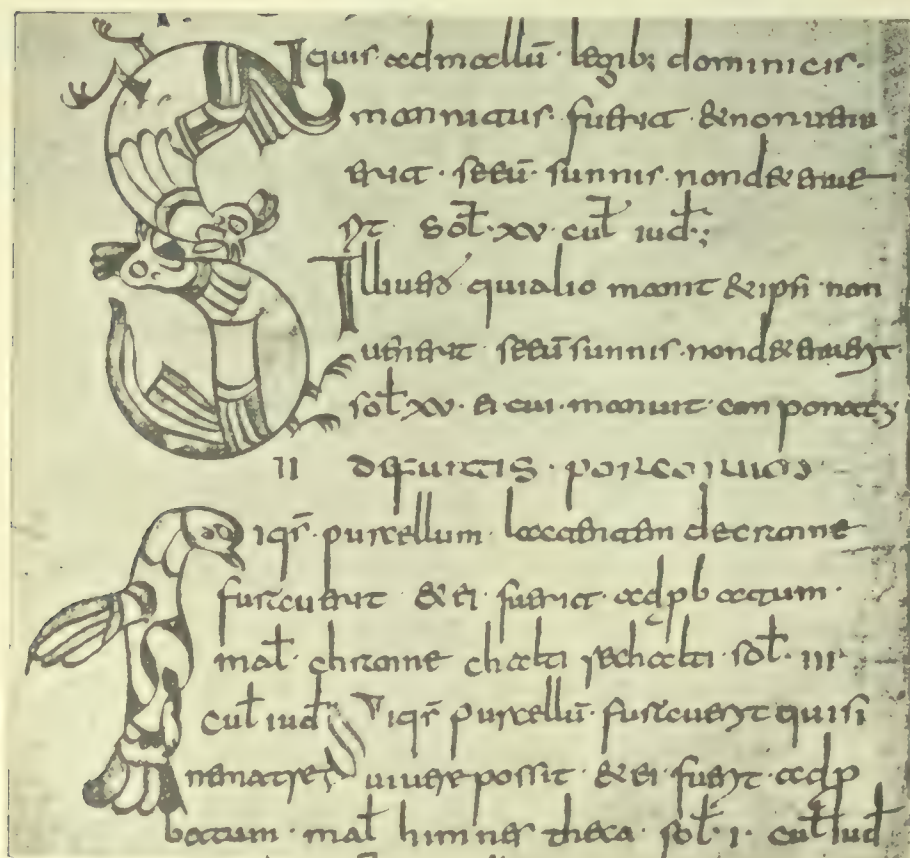 Siquis ad mallū· legib; dominicis·
mannitus· fuerit &non uen
erit· seeū· sunnis· nond&enue
rit sol·xv· cul iud·;
Illiuero quialio manit &ipsi non
uenerit seeū sunnis· nond&enuerit
sol xv· ei cui· manuit· conponat;
II defurtis· porcorum·
Siqs̄· purcellum lactantem decranne
furauerit &ei fuerit· adpbatum·
mal· chranne chalti rechalti· sol· III
cul iud Siqs̄ purcellū· furauerit quisi
nematre uiuere possit &ei fuerit adp
batum· mal himnes theca· sol·I· cul iud